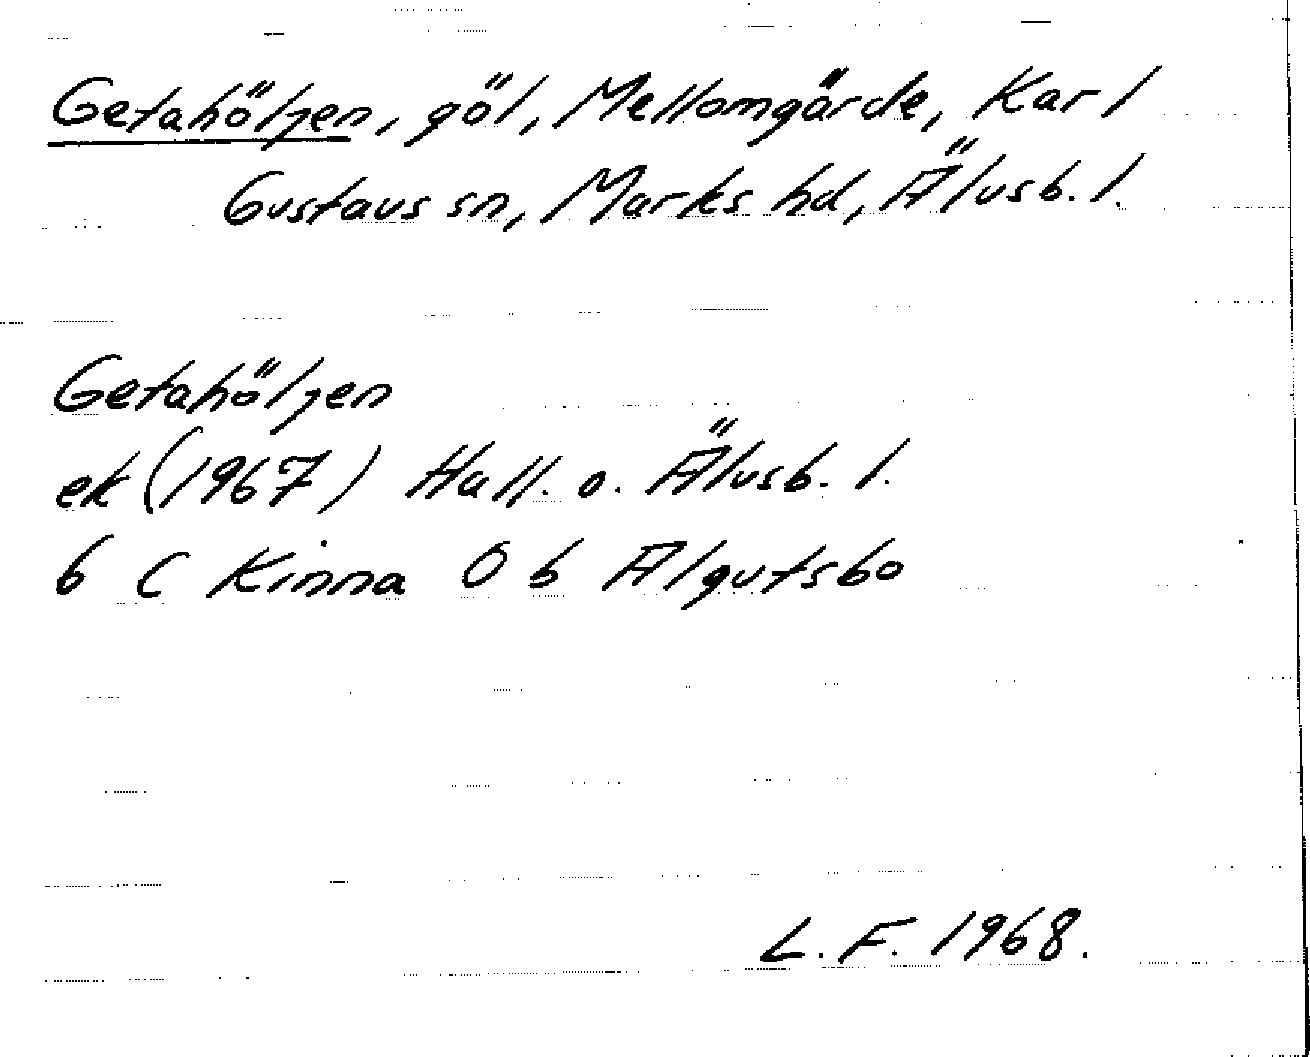 Getahöljen, göl, Mellomgärde, Karl
Gustavs sn, Marks hd, Älvsb. l.
Getahöljen
ek (1967) Hall. o. Älvsb. l.
6 C Kinna 0 b Älgutsbo
L. F. 1968.